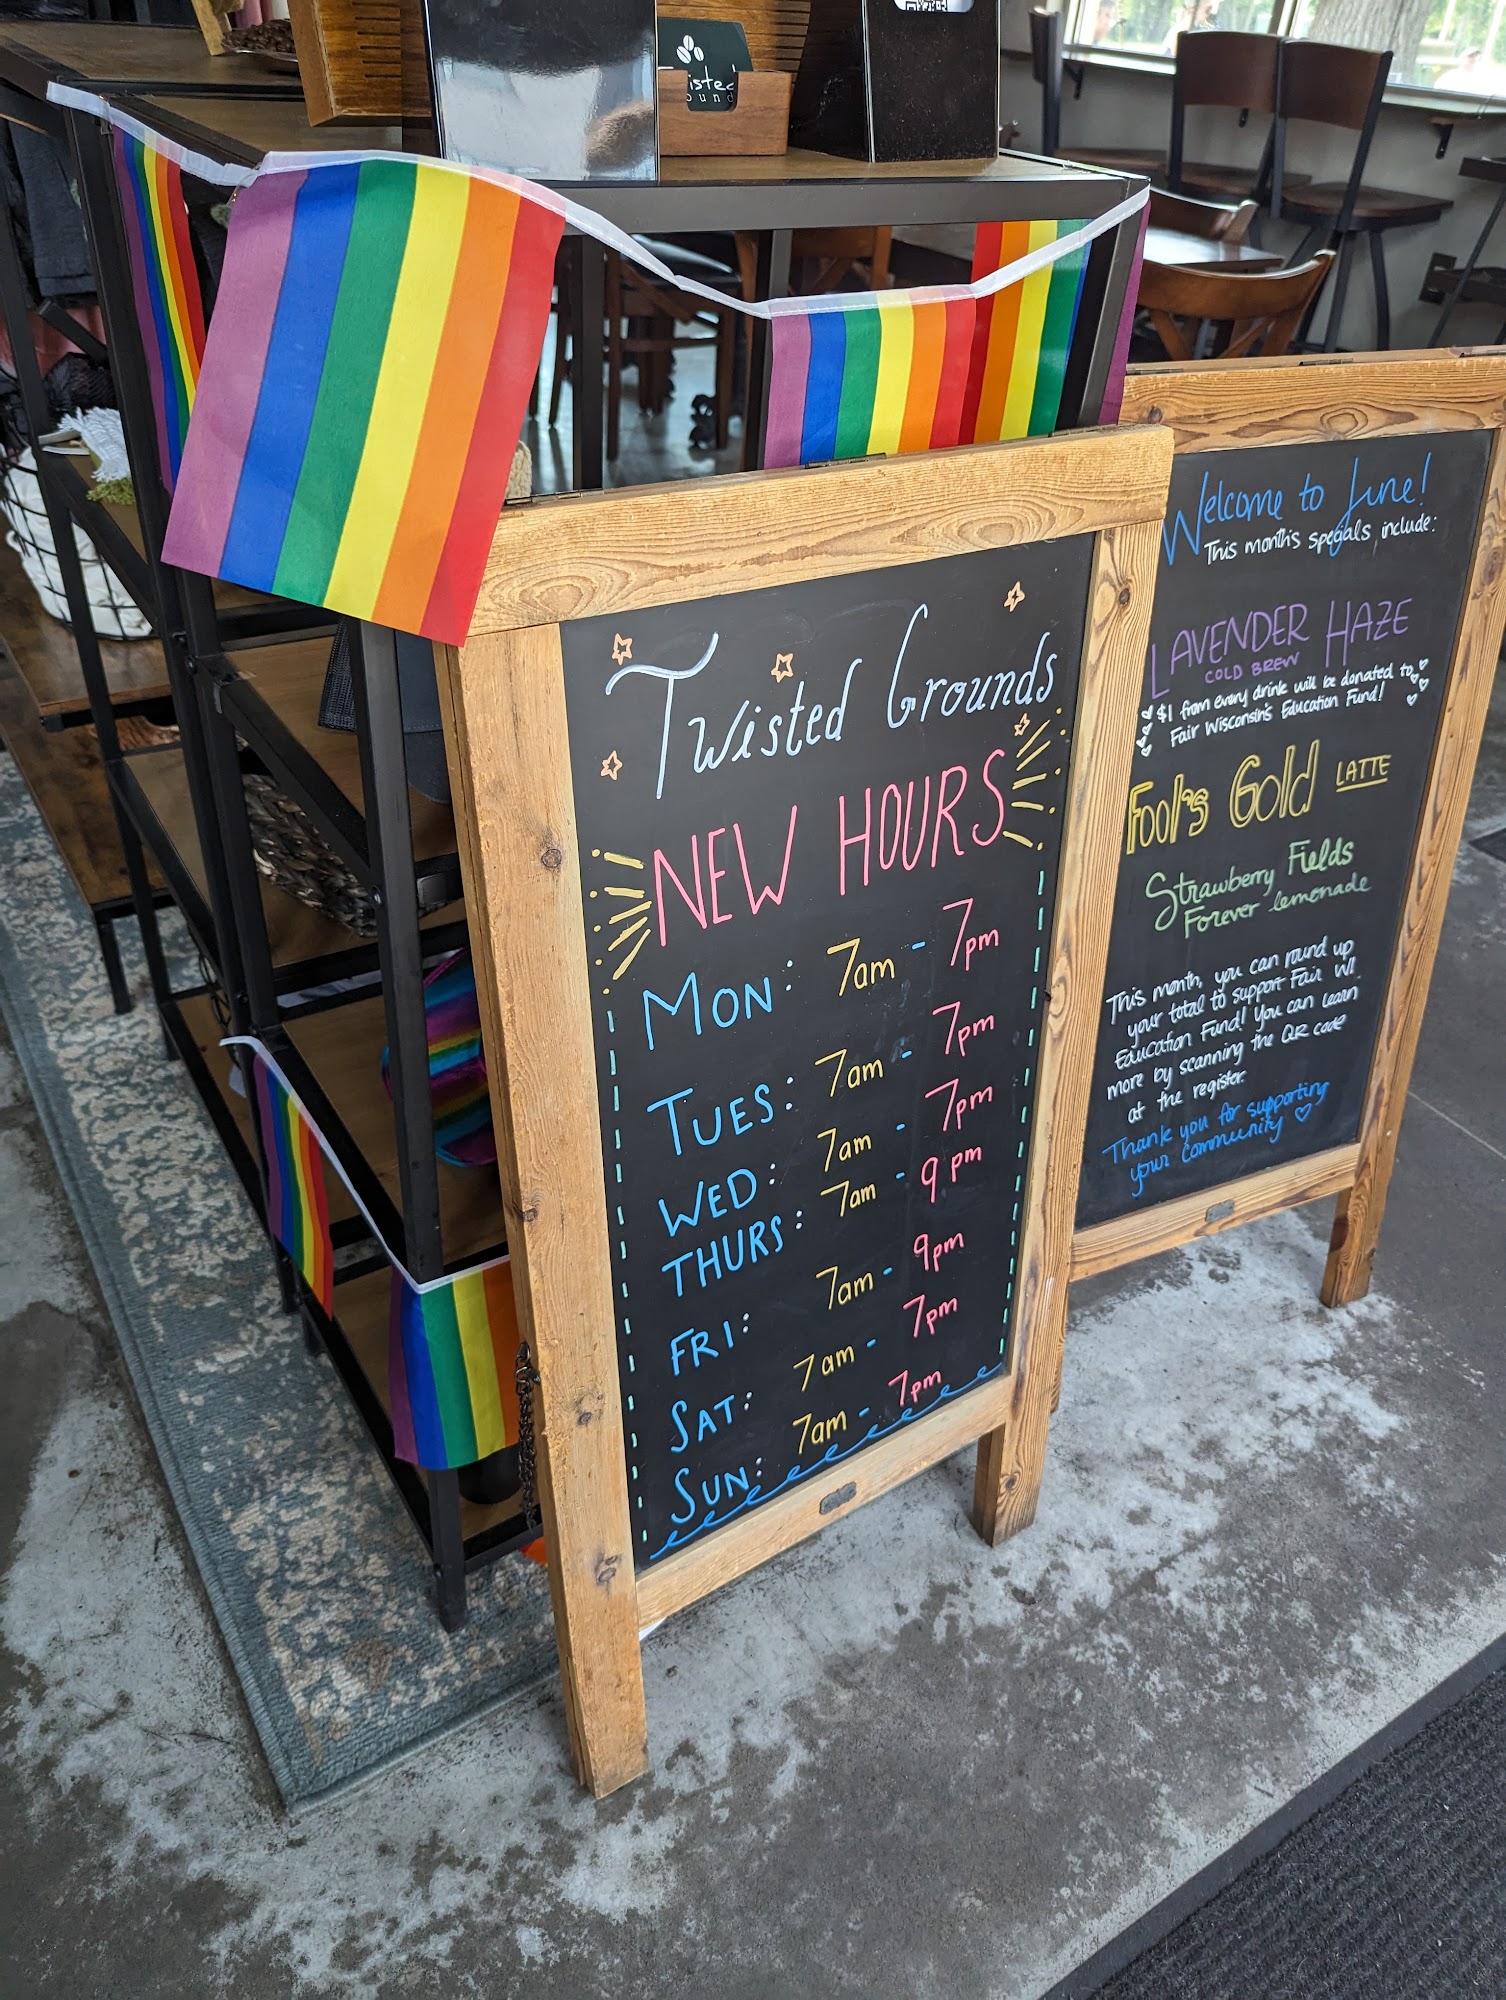 isted
ound
Twisted Grounds
NEW HOURS
MON: 7am - 7pm
TUES: 7am - 7pm
WED: 7am - 7pm
THURS: 7am - 9pm
FRI: 7am - 9pm
SAT: 7am - 7pm
SUN: 7am - 7pm
Welcome to June!
This month's specials include:
LAVENDER HAZE
COLD BREW
$1 from every drink will be donated to
Fair Wisconsin's Education Fund!
Fool's Gold LATTE
Strawberry Fields
Forever lemonade
This month, you can round up
your total to support Fair WI
Education Fund! You can learn
more by scanning the QR code
at the register.
Thank you for supporting
your community